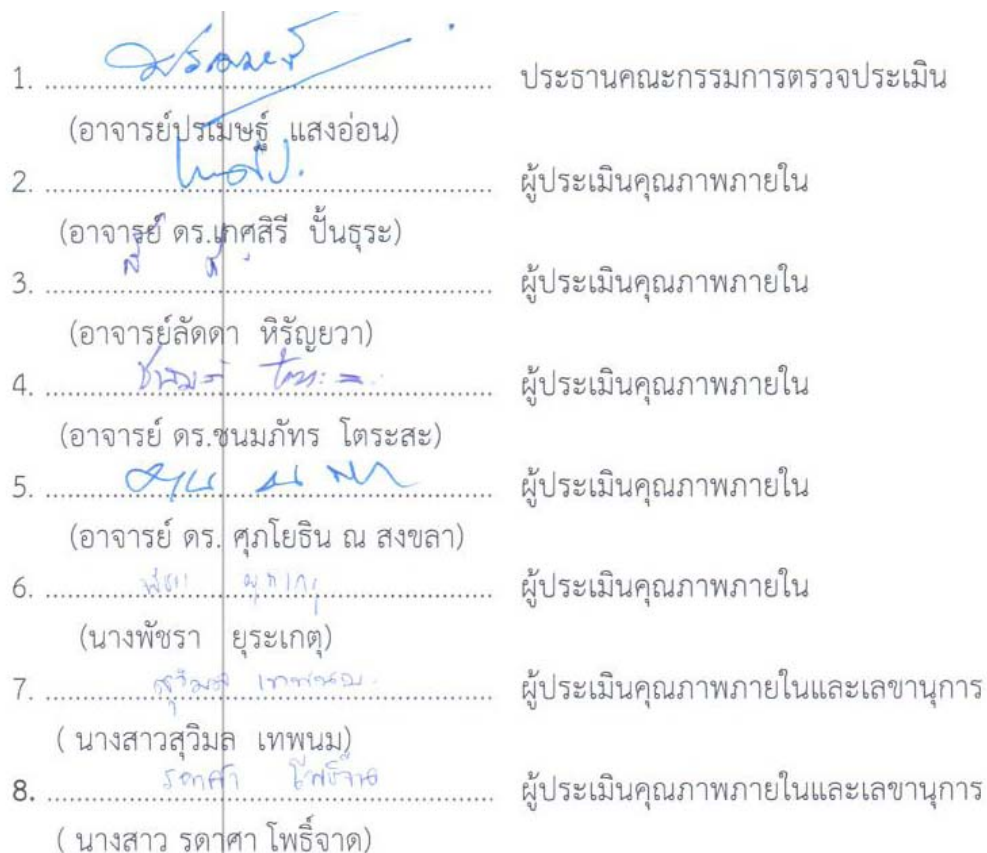 1. ............................................................ ประธานคณะกรรมการตรวจประเมิน
(อาจารย์ปรเมษฐ์ แสงอ่อน)
2. ............................................................ ผู้ประเมินคุณภาพภายใน
(อาจารย์ ดร.เกศุสิรี ปั้นธุระ)
3. ............................................................ ผู้ประเมินคุณภาพภายใน
(อาจารย์ลัดดา หิรัญยวา)
4. ............................................................ ผู้ประเมินคุณภาพภายใน
(อาจารย์ ดร.ชนมภัทร โตระสะ)
5. ............................................................ ผู้ประเมินคุณภาพภายใน
(อาจารย์ ดร. ศุภโยธิน ณ สงขลา)
6. ............................................................ ผู้ประเมินคุณภาพภายใน
(นางพัชรา ยุระเกตุ)
สุวิมล เทพนม
7. ............................................................ ผู้ประเมินคุณภาพภายในและเลขานุการ
( นางสาวสุวิมล เทพนม)
รดาศา โพธิ์จาด
8. ............................................................ ผู้ประเมินคุณภาพภายในและเลขานุการ
( นางสาว รดาศา โพธิ์จาด)